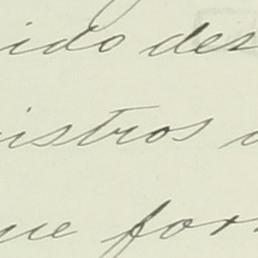 ido des
istros
ue for